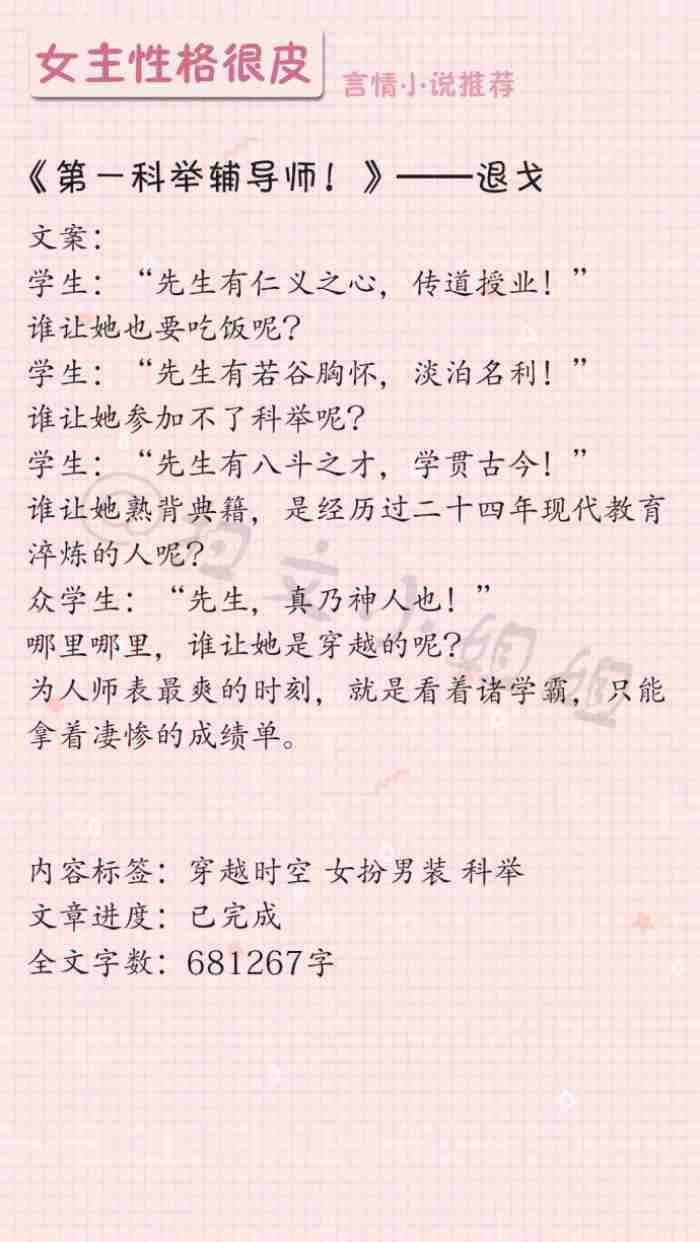 女主性格很皮
言情小说推荐
《第一科举辅导师！》——退戈
文案：
学生：“先生有仁义之心，传道授业！”
谁让她也要吃饭呢？
学生：“先生有若谷胸怀，淡泊名利！”
谁让她参加不了科举呢？
学生：“先生有八斗之才，学贯古今！”
谁让她熟背典籍，是经历过二十四年现代教育
淬炼的人呢？
众学生：“先生，真乃神人也！”
哪里哪里，谁让她是穿越的呢？
为人师表最爽的时刻，就是看着诸学霸，只能
拿着凄惨的成绩单。
内容标签：穿越时空 女扮男装 科举
文章进度：已完成
全文字数：681267字